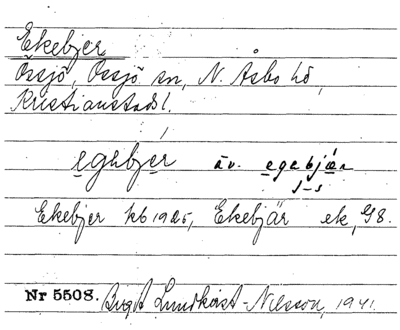 Ekebjer
Össjö, Össjö sn, N. Åsbo hd,
Kristianstads l.
egebjér äv. egebjär
Ekebjer kb 1925, Ekebjär ek, G8.
Nr 5508. Birgit Lundkvist-Nilsson, 1941.